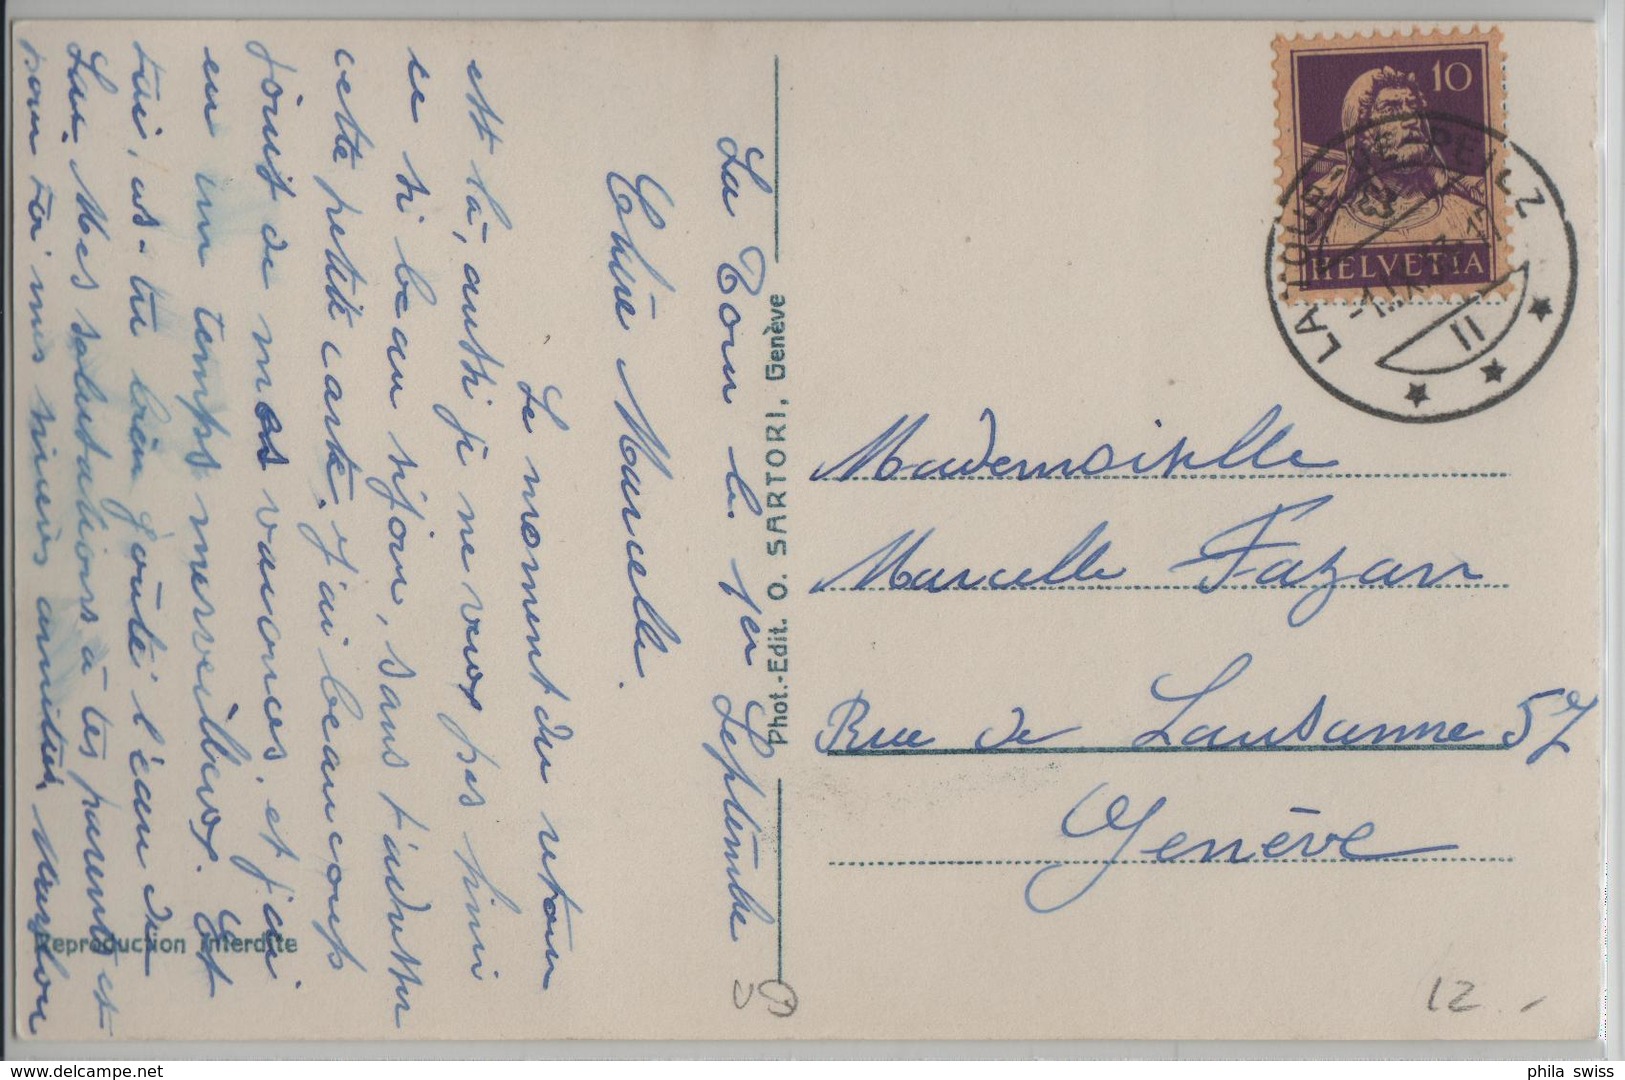 La Tour le 1er Septembre
Chère Marcelle.
Le moment du retour
est là, aussi je ne veux pas finir
ce si beau séjour, sans t'adresser
cette petite carte. J'ai beaucoup
jouit de mes vacances, et j'ai
eu un temps merveilleux. Et
toi, as-tu bien goûté l'eau du
Lac. Mes salutations à tes parents et
pour toi mes sincères amitiés
Reproduction interdite
Phot.-Edit. O. SARTORI, Genève
10
HELVETIA
LA TOUR-DE-PEILZ
II
Mademoiselle
Marcelle Fazan
Rue de Lausanne 57
Genève
12.-
delcampe.net
phila_swiss